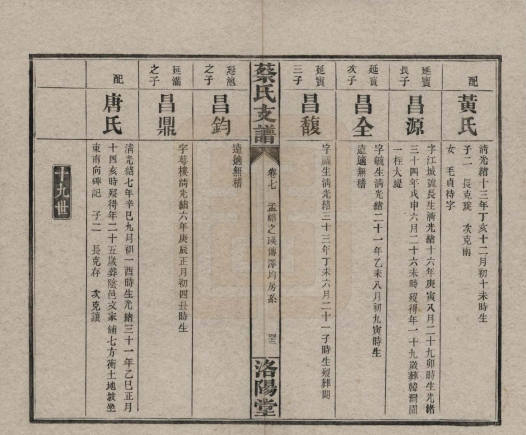 配
黃氏
清光緒十三年丁亥十二月初十未時生
子二 長克 次克南
女 毛貞特字
延寶
長子
昌源
字江城號長生清光緒十六年庚寅八月二十九卯時生光緒
三十四年戊申六月二十六未時歿得年一十九歲葬韓灣園
一柱大堤
延寶
次子
昌全
字毓生清光緒二十一年乙未八月初九寅時生
遠適無稽
延寶
三子
昌馥
字 生清光緒三十三年丁未六月二十一子時生歿葬闕
蔡氏支譜
卷七
孟 之 傳澤均房系
洛陽堂
之子
昌鈞
遠適無稽
延滿
之子
昌鼎
字萼樓清光緒六年庚辰正月初四丑時生
配
唐氏
清光緒七年辛巳九月初一酉時生光緒三十一年乙巳正月
十四亥時歿得年二十五歲葬陰邑文家舖七方衝土地 坐
東南向碑記 子二 長克存 次克讓
十九世